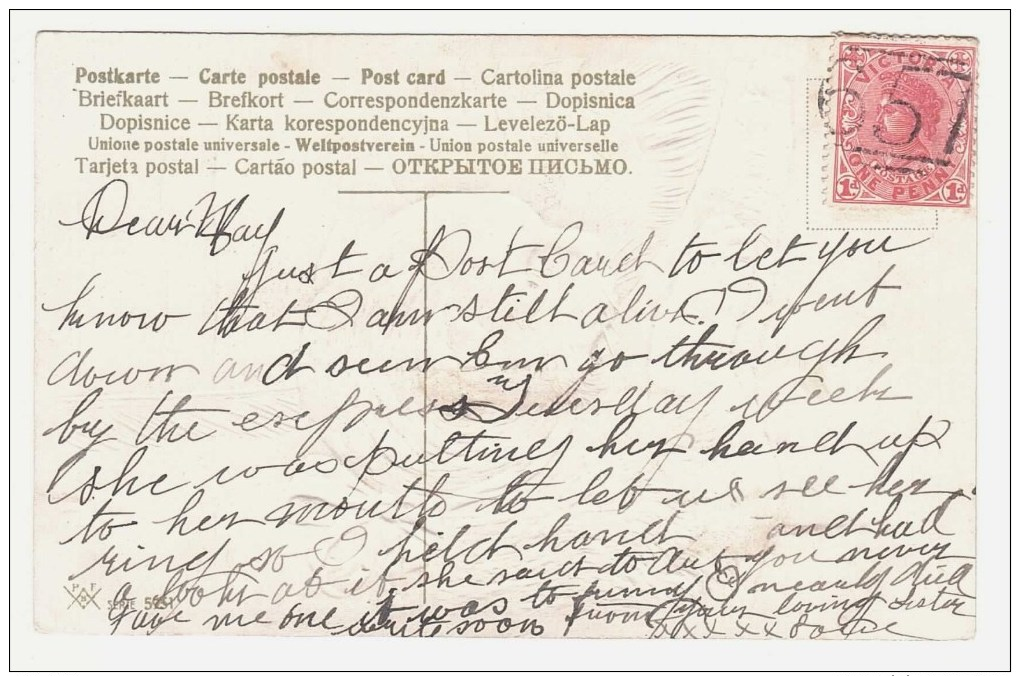 Postkarte — Carte postale — Post card — Cartolina postale
Briefkaart — Brefkort — Correspondenzkarte — Dopisnica
Dopisnice — Karta korespondencyjna — Levelezö-Lap
Unione postale universale - Weltpostverein - Union postale universelle
Tarjeta postal — Cartão postal — ОТКРЫТОЕ ПИСЬМО.
VICTORIA
POSTAGE
ONE PENNY
1d 1d
Dear May
Just a Post Card to let you
know that I am still alive. I went
down and seen Em go through
by the express Tuesday week
she was putting her hand up
to her mouth to let us see her
ring so I held hand and had
a look at it she said to you never
gave me one it was to funny I nearly died
write soon from your loving sister
xxxxx
SERIE 5251